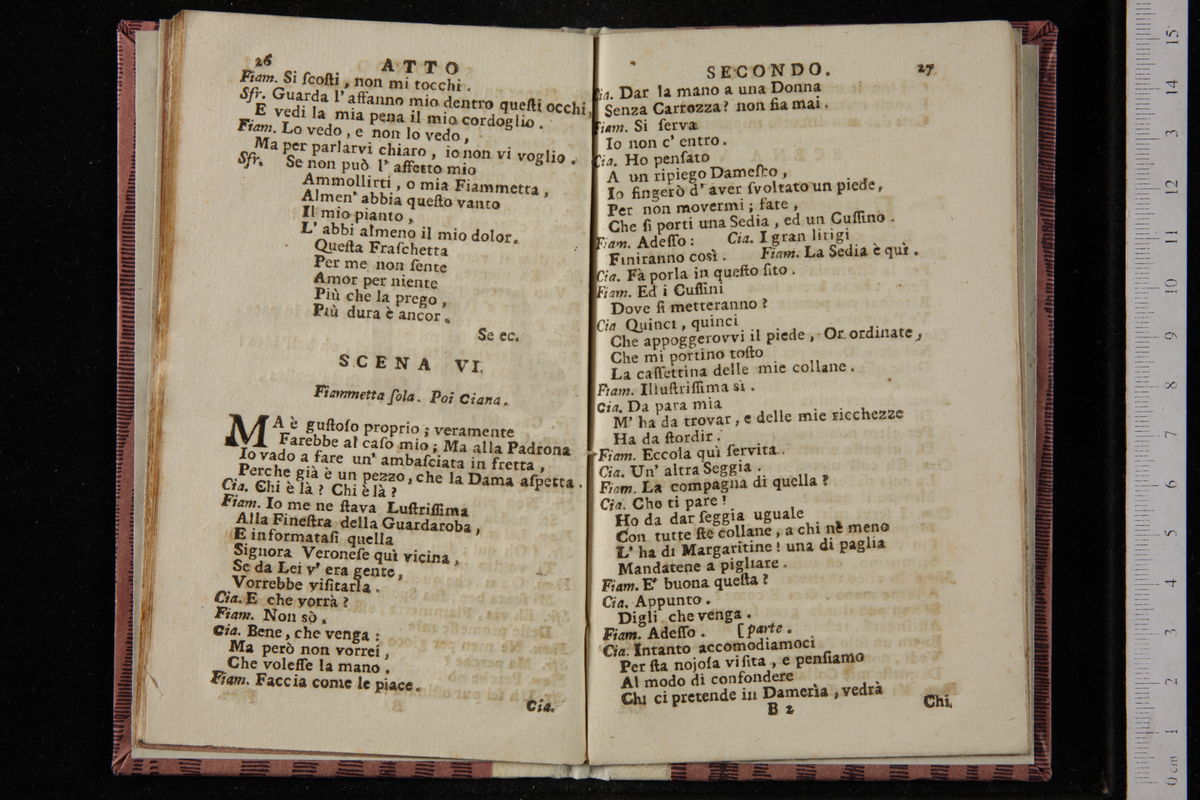 26 ATTO
Fiam. Si ſcoſti, non mi tocchi.
Sfr. Guarda l' affanno mio dentro queſti occhi,
E vedi la mia pena il mio cordoglio.
Fiam. Lo vedo, e non lo vedo,
Ma per parlarvi chiaro, io non vi voglio.
Sfr. Se non può l' affetto mio
Ammollirti, o mia Fiammetta,
Almen' abbia queſto vanto
Il mio pianto,
L' abbi almeno il mio dolor.
Queſta Fraſchetta
Per me non ſente
Amor per niente
Più che la prego,
Più dura è ancor.
Se ec.
SCENA VI.
Fiammetta ſola. Poi Ciana.
MA è guſtoſo proprio; veramente
Farebbe al caſo mio; Ma alla Padrona
Io vado a fare un' ambaſciata in fretta,
Perche già è un pezzo, che la Dama aſpetta.
Cia. Chi è là? Chi è là?
Fiam. Io me ne ſtava Luſtriſſima
Alla Fineſtra della Guardaroba,
E informataſi quella
Signora Veroneſe quì vicina,
Se da Lei v' era gente,
Vorrebbe viſitarla.
Cia. E che vorrà?
Fiam. Non sò.
Cia. Bene, che venga:
Ma però non vorrei,
Che voleſſe la mano.
Fiam. Faccia come le piace.
Cia.
SECONDO. 27
Cia. Dar la mano a una Donna
Senza Carrozza? non fia mai.
Fiam. Si ſerva
Io non c' entro.
Cia. Ho penſato
A un ripiego Dameſco,
Io fingerò d' aver ſvoltato un piede,
Per non movermi; fate,
Che ſi porti una Sedia, ed un Cuſſino.
Fiam. Adeſſo: Cia. I gran litigi
Finiranno così. Fiam. La Sedia è quì.
Cia. Fà porla in queſto ſito.
Fiam. Ed i Cuſſini
Dove ſi metteranno?
Cia Quinci, quinci
Che appoggerovvi il piede, Or ordinate,
Che mi portino toſto
La caſſettina delle mie collane.
Fiam. Illuſtriſſima si.
Cia. Da para mia
M' ha da trovar, e delle mie ricchezze
Ha da ſtordir.
Fiam. Eccola quì ſervita.
Cia. Un' altra Seggia.
Fiam. La compagna di quella?
Cia. Che ti pare!
Ho da dar ſeggia uguale
Con tutte ſte collane, a chi nè meno
L' ha di Margaritine! una di paglia
Mandatene a pigliare.
Fiam. E' buona queſta?
Cia. Appunto.
Digli che venga.
Fiam. Adeſſo. [parte.
Cia. Intanto accomodiamoci
Per ſta nojoſa viſita, e penſiamo
Al modo di confondere
Chi ci pretende in Damerìa, vedrà
B 2 Chi,